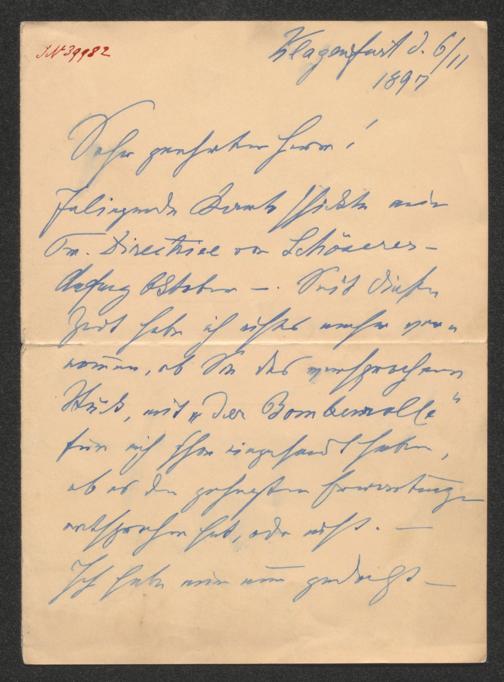 J.N 39982
Klagenfurt d. 6/11
1897
Sehr geehrter Herr!
Inliegende Karte schickte mir
Fr. Directrice von Schönerer –
Anfang Oktober –. Seit dieser
Zeit habe ich nichts mehr ver-
nommen, ob Sie das versprochene
Stück, mit „Der Bombenrolle“
für mich schon eingesandt haben,
ob es den gehegten Erwartungen
entsprochen hat, oder nicht. —
Ich habe mir nun gedacht –